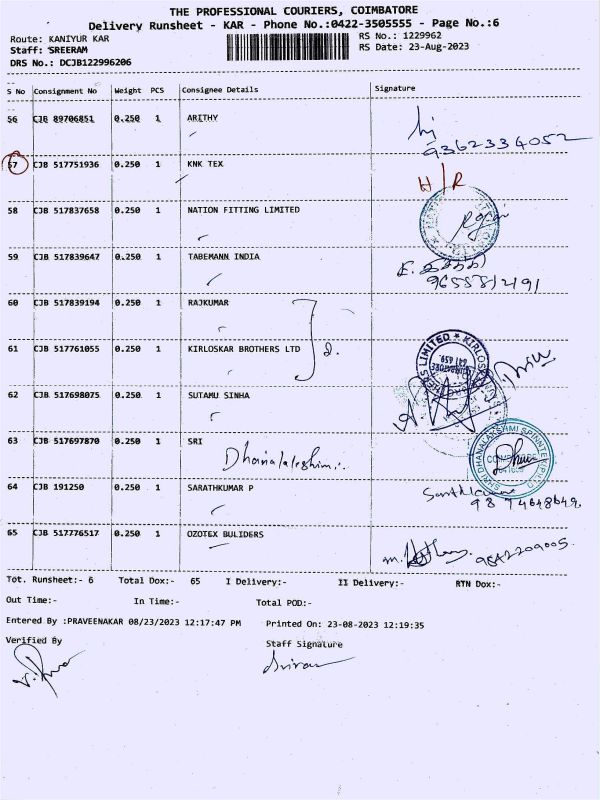 THE PROFESSIONAL COURIERS, COIMBATORE
Delivery Runsheet - KAR - Phone No.:0422-3505555 - Page No.:6
Route: KANIYUR KAR RS No.: 1229962
Staff: SREERAM RS Date: 23-Aug-2023
DRS No.: DCJB122996206
S No Consignment No Weight PCS Consignee Details Signature
56 CJB 89706851 0.250 1 ARITHY
9362334052
57 CJB 517751936 0.250 1 KNK TEX H/R
58 CJB 517837658 0.250 1 NATION FITTING LIMITED
59 CJB 517839647 0.250 1 TABEMANN INDIA
9655812191
60 CJB 517839194 0.250 1 RAJKUMAR
61 CJB 517761055 0.250 1 KIRLOSKAR BROTHERS LTD 2.
KIRLOSKAR BROTHERS LIMITED
COIMBATORE
641 659.
62 CJB 517698075 0.250 1 SUTAMU SINHA
63 CJB 517697870 0.250 1 SRI
Dhanalakshmi
SHRI DHANALAKSHMI SPINNTEX (P) LTD
64 CJB 191250 0.250 1 SARATHKUMAR P
9874648649
65 CJB 517776517 0.250 1 OZOTEX BULIDERS 9842209005.
Tot. Runsheet:- 6 Total Dox:- 65 I Delivery:- II Delivery:- RTN Dox:-
Out Time:- In Time:- Total POD:-
Entered By :PRAVEENAKAR 08/23/2023 12:17:47 PM Printed On: 23-08-2023 12:19:35
Verified By Staff Signature